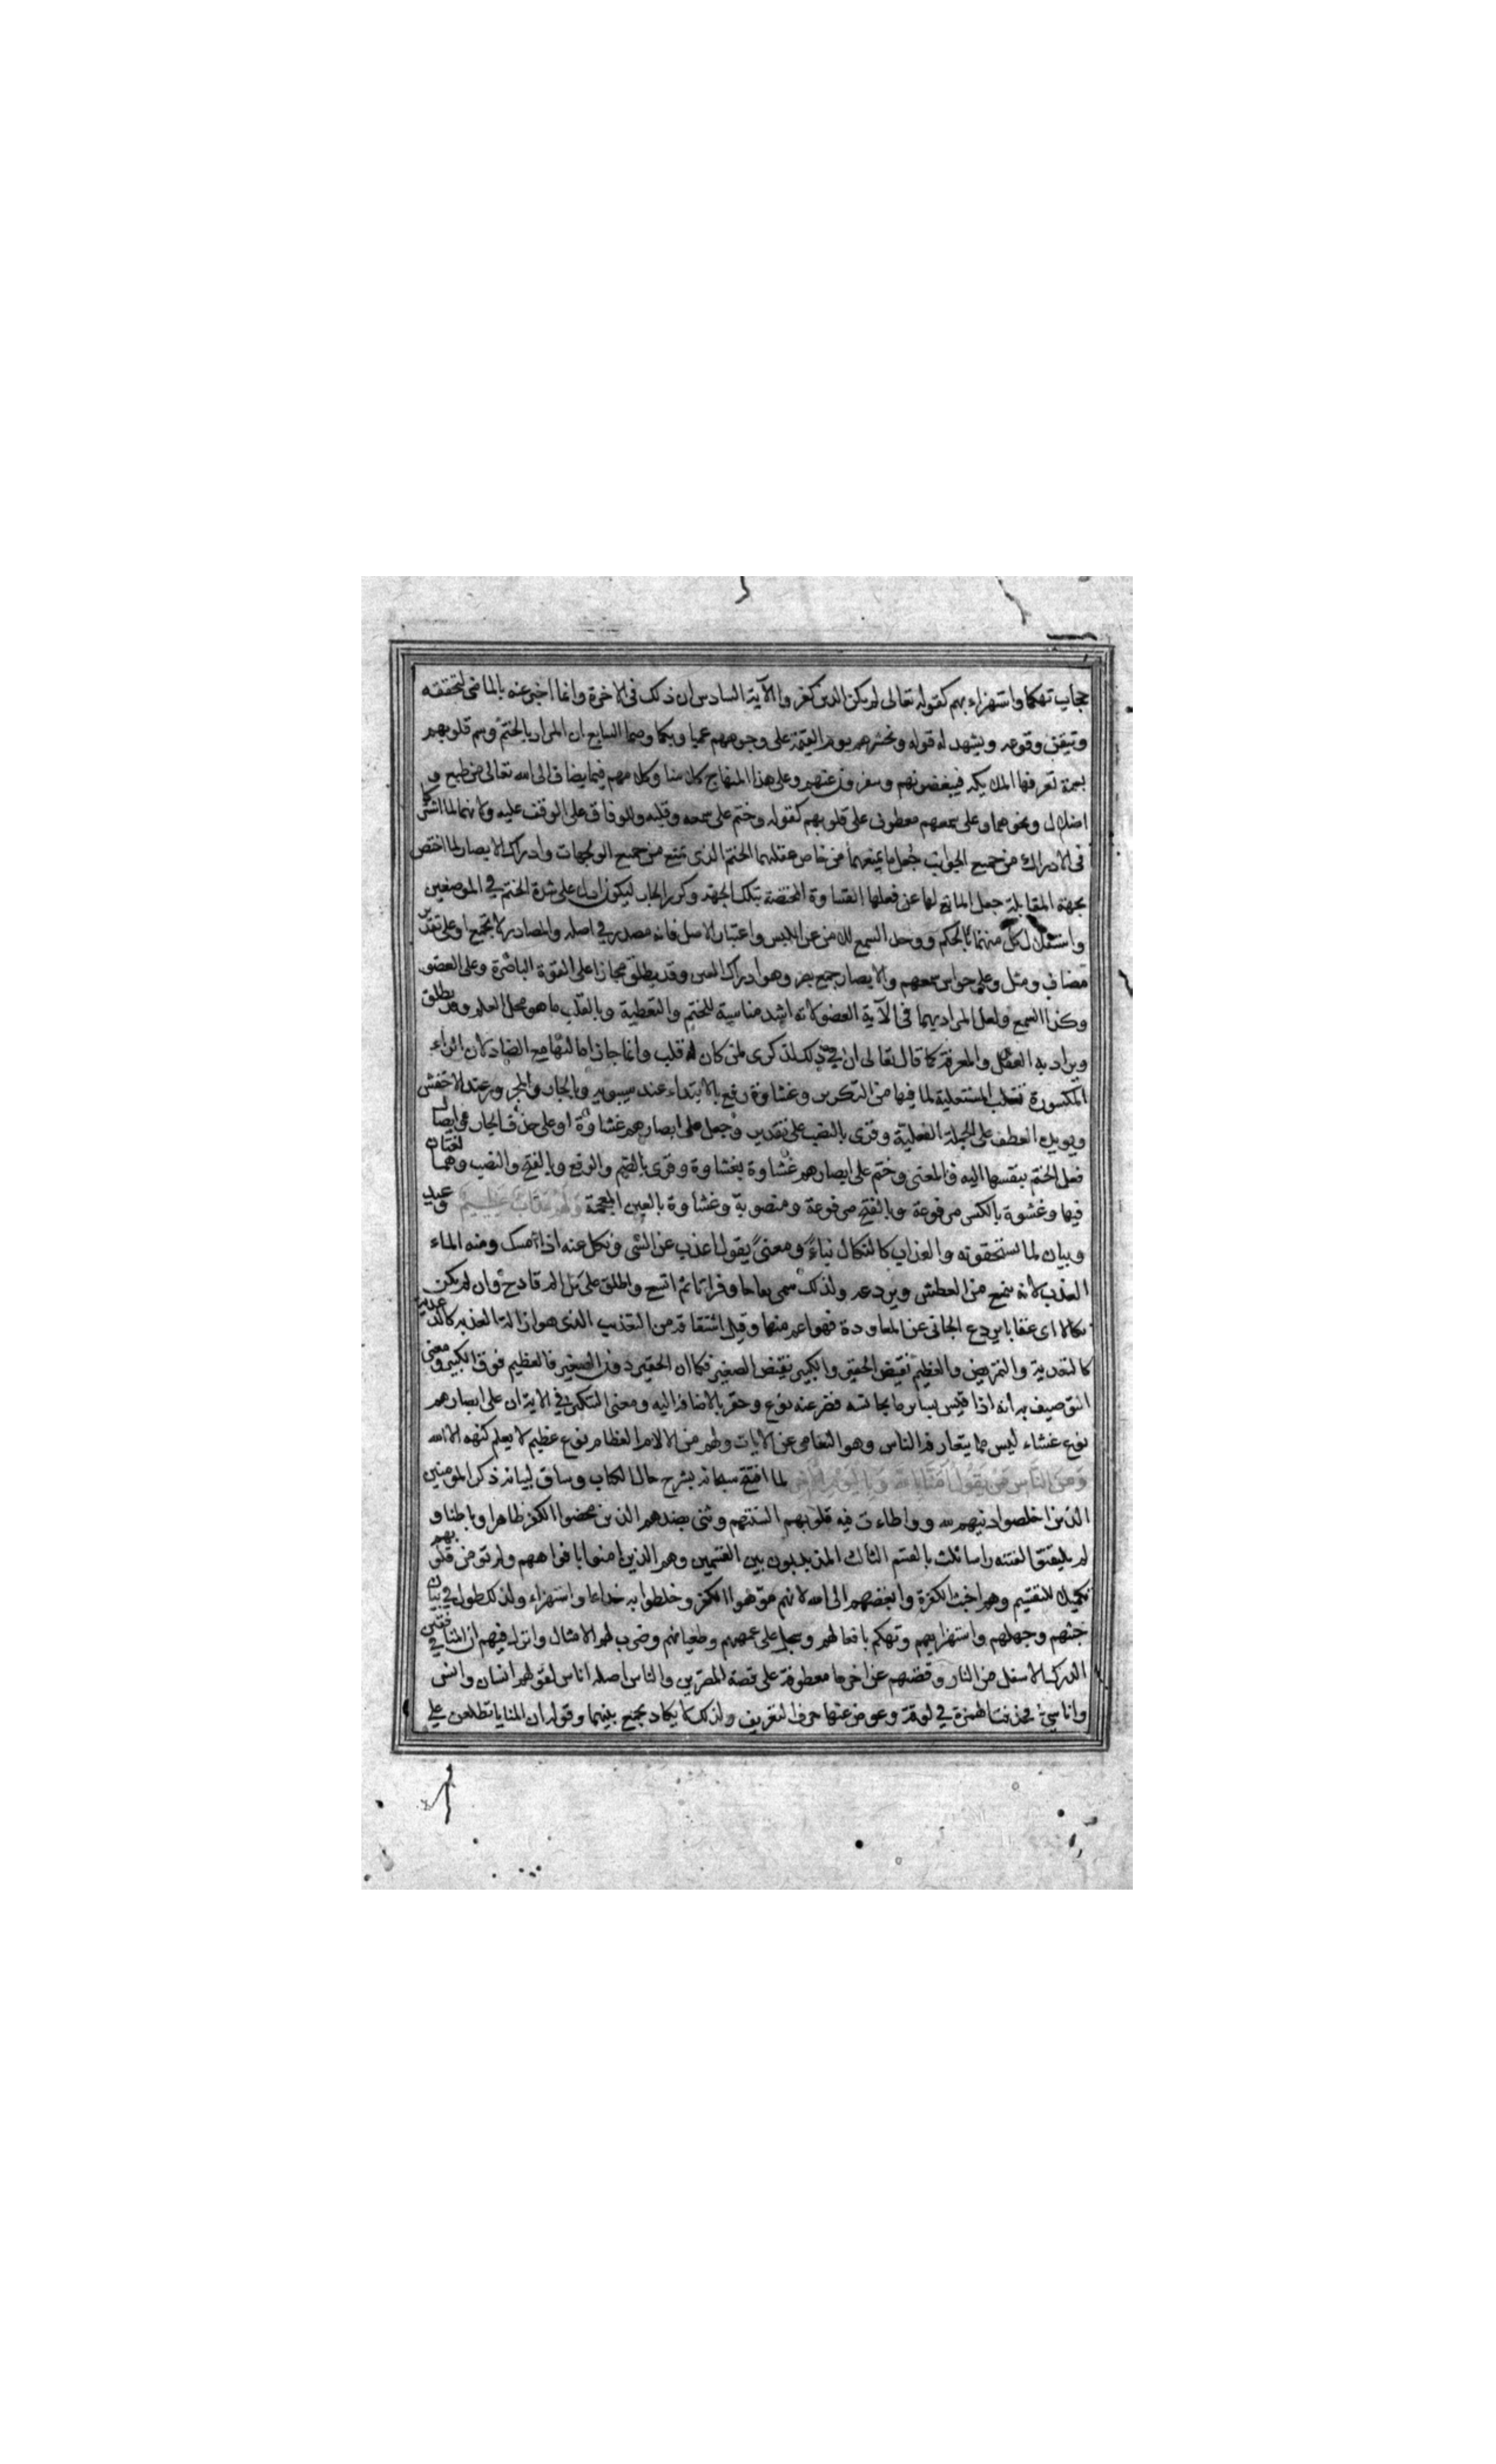 حجاب تهكما واستهزاء بهم كقوله تعالى لم يكن الذين كفروا الآية السادس ان ذلك فى الاخرة وانما اخبر عنه بالماضى لتحققه
وتيقن وقوعه ويشهد له قوله ونحشرهم يوم القيمة على وجوههم عميا وبكما وصما السابع ان المراد بالختم وسم قلوبهم
بسمة تعرفها الملئكة فيبغضونهم وعلى هذا المنهاج كلامنا وكلامهم فيما يضاف الى الله تعالى من طبع و
اضلال ونحوهما وعلى سمعهم معطوف على قلوبهم كقوله وختم على سمعه وقلبه وللوفاق على الوقف عليه ولانهما لما اشتركا
فى الادراك من جميع الجوانب جعل ما يمنعهما من خاص فعلهما الختم الذى يمنع من جميع الجهات وادراك الابصار لما اختص
بجهة المقابلة جعل المانع لها عن فعلها الغشاوة المختصة بتلك الجهة وكرر الجار ليكون ادل على شدة الختم في الموضعين
واستقلال كل منهما بالحكم ووحد السمع للامن عن اللبس واعتبار الاصل فانه مصدر في اصله والمصادر لا تجمع او على تقدير
مضاف ومثل وعلى حواس سمعهم والابصار جمع بصر وهو ادراك العين وقد يطلق مجازا على القوة الباصرة وعلى العضو
وكذا السمع ولعل المراد بهما فى الآية العضو لانه اشد مناسبة للختم والتغطية وبالقلب ما هو محل العلم وقد يطلق
ويراد به العقل والمعرفة كما قال تعالى ان في ذلك لذكرى لمن كان له قلب وانما جاز امالتها مع الصاد لان الراء
المكسورة تغلب المستعلية لما فيها من التكرير وغشاوة رفع بالابتداء عند سيبويه وبالجار والمجرور عند الاخفش
ويويده العطف على الجملة الفعلية وقرى بالنصب على تقدير وجعل على ابصارهم غشاوة او على حذف الجار وايصال
فعل الختم بنفسها اليه والمعنى وختم على ابصارهم غشاوة بغشاوة وقرى بالضم والرفع وبالفتح والنصب وهما لغتان
فيها وغشوة بالكسر مرفوعة وبالفتح مرفوعة ومنصوبة وغشاوة بالعين المعجمة وَلَهُمْ عَذَابٌ عَظِيمٌ وعيد
وبيان لما يستحقونه والعذاب كالنكال بناءً ومعنىً يقول اعذب عن الشى ونكل عنه اذا امسك ومنه الماء
العذب لانه يمنع من العطش ويردعه ولذلك سمى نقاخا وفراتا ثم اتسع واطلق على كل الم قادح وان لم يكن
نكالا اى عقابا يردع الجانى عن المعاودة فهو اعم منهما وقيل اشتقاقه من التعذيب الذى هو ازالة العذب
كالتقذية والتمريض والعظيم نقيض الحقير والكبير نقيض الصغير فكما ان الحقير دون الصغير فالعظيم فوق الكبير ومعنى
التوصيف به انه اذا قيس بساير ما يجانسه قصر عنه نوع وحقر بالاضافة اليه ومعنى التنكير في الاية ان على ابصارهم
نوع غشاء ليس مما يتعارفه الناس وهو التعامى عن الايات ولهم من الالام العظام نوع عظيم لا يعلم كنهه الا الله
وَمِنَ النَّاسِ مَنْ يَقُولُ آمَنَّا بِاللَّهِ وَبِالْيَوْمِ الْآخِرِ لما افتتح سبحانه بشرح حال الكتاب وساق لبيانه ذكر المومنين
الذين اخلصوا دينهم لله وواطاءت فيه قلوبهم السنتهم وثنى بضدهم الذين محضوا الكفر ظاهرا وباطنا و
لم يلتفتوا لفتة راسا ثلث بالقسم الثالث المذبذبون بين القسمين وهم الذين امنوا بافواههم ولم تومن قلوبهم
تكميلا للتقسيم وهم اخبث الكفرة وابغضهم الى الله لانهم موهوا الكفر وخلطوا به خداعا واستهزاء ولذلك طول في بيان
خبثهم وجهلهم واستهزا بهم وتهكم بافعالهم وسجل على عمههم وطغيانهم وضرب لهم الامثال وانزل فيهم ان المنافقين في
الدرك الاسفل من النار وقصتهم عن اخرها معطوفة على قصة المصرين والناس اصله اناس لقولهم انسان وانس
واناسي فحذفت الهمزة في لوقة وعوض عنها حرف التعريف ولذلك لا يكاد يجمع بينهما وقوله ان المنايا تطلعن على